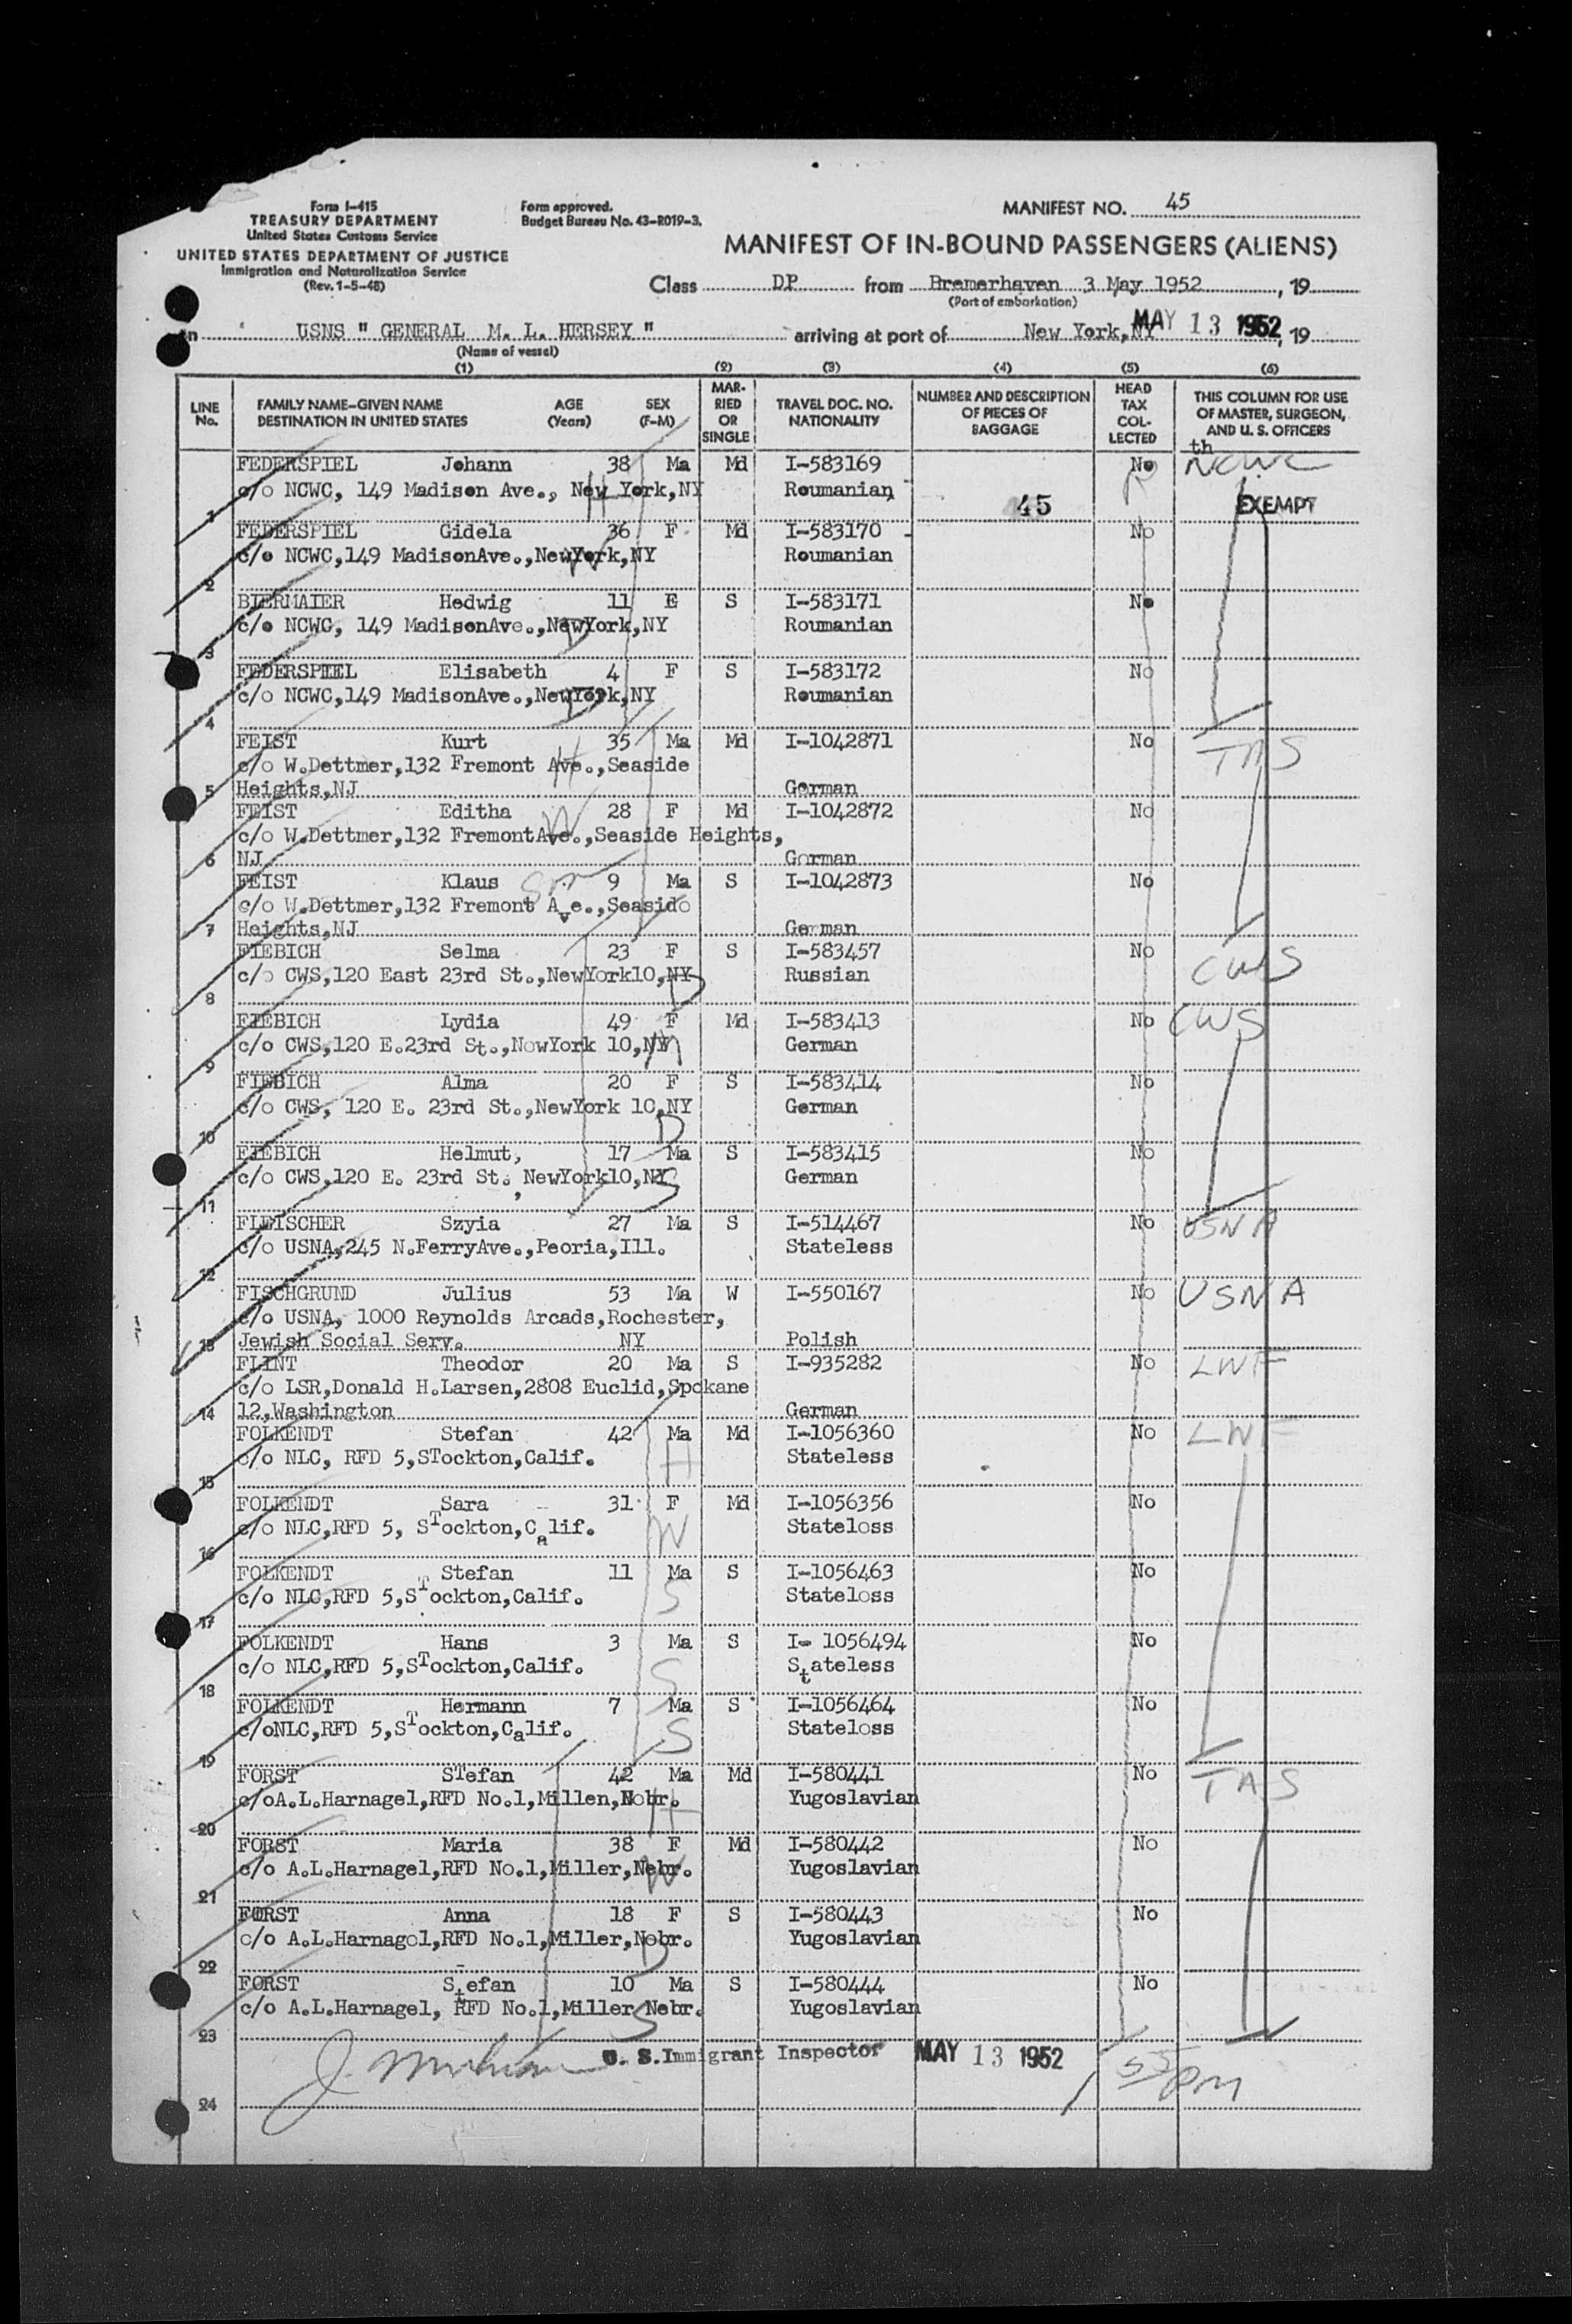 Form I-415
TREASURY DEPARTMENT
United States Customs Service
UNITED STATES DEPARTMENT OF JUSTICE
Immigration and Naturalization Service
(Rev. 1-5-48)
Form approved.
Budget Bureau No. 43-R019-3.
MANIFEST NO. 45
MANIFEST OF IN-BOUND PASSENGERS (ALIENS)
Class DP from Bremerhaven 3 May 1952, 19
(Port of embarkation)
on USNS " GENERAL M. L. HERSEY " arriving at port of New York,NY MAY 13 1952, 19
(Name of vessel)
(1) (2) (3) (4) (5) (6)
LINE No. FAMILY NAME-GIVEN NAME DESTINATION IN UNITED STATES AGE (Years) SEX (F-M) MARRIED OR SINGLE TRAVEL DOC. NO. NATIONALITY NUMBER AND DESCRIPTION OF PIECES OF BAGGAGE HEAD TAX COLLECTED THIS COLUMN FOR USE OF MASTER, SURGEON, AND U. S. OFFICERS
th
FEDERSPIEL Johann 38 Ma Md I-583169 No NCWC
c/o NCWC, 149 Madison Ave., New York,NY Roumanian 45 EXEMPT
H
1
FEDERSPIEL Gidela 36 F Md I-583170 No
c/o NCWC,149 MadisonAve.,NewYork,NY Roumanian
W
2
BIERMAIER Hedwig 11 F S I-583171 No
c/o NCWC, 149 MadisonAve.,NewYork,NY Roumanian
D
3
FEDERSPIEL Elisabeth 4 F S I-583172 No
c/o NCWC,149 MadisonAve.,NewYork,NY Roumanian
D
4
FEIST Kurt 35 Ma Md I-1042871 No TAS
c/o W.Dettmer,132 Fremont Ave.,Seaside
H
5 Heights,NJ German
FEIST Editha 28 F Md I-1042872 No
c/o W.Dettmer,132 FremontAve.,Seaside Heights,
W
6 NJ German
FEIST Klaus son 9 Ma S I-1042873 No
c/o W.Dettmer,132 Fremont Ave.,Seaside
7 Heights,NJ German
FIEBICH Selma 23 F S I-583457 No CWS
c/o CWS,120 East 23rd St.,NewYork10,NY Russian
D
8
FIEBICH Lydia 49 F Md I-583413 No CWS
c/o CWS,120 E.23rd St.,NewYork 10,NY German
9
FIEBICH Alma 20 F S I-583414 No
c/o CWS, 120 E. 23rd St.,NewYork 10,NY German
D
10
FIEBICH Helmut, 17 Ma S I-583415 No
c/o CWS,120 E. 23rd St., NewYork10,NY German
S
11
FLEISCHER Szyia 27 Ma S I-514467 No USNA
c/o USNA,245 N.FerryAve.,Peoria,Ill. Stateless
12
FISCHGRUND Julius 53 Ma W I-550167 No USNA
c/o USNA, 1000 Reynolds Arcads,Rochester,
13 Jewish Social Serv. NY Polish
FLINT Theodor 20 Ma S I-935282 No LWF
c/o LSR,Donald H.Larsen,2808 Euclid,Spokane
14 12,Washington German
FOLKENDT Stefan 42 Ma Md I-1056360 No LWF
c/o NLC, RFD 5,STockton,Calif. Stateless
H
15
FOLKENDT Sara 31 F Md I-1056356 No
c/o NLC,RFD 5, STockton,Calif. Stateless
W
16
FOLKENDT Stefan 11 Ma S I-1056463 No
c/o NLC,RFD 5,STockton,Calif. Stateless
S
17
FOLKENDT Hans 3 Ma S I- 1056494 No
c/o NLC,RFD 5,STockton,Calif. Stateless
S
18
FOLKENDT Hermann 7 Ma S I-1056464 No
c/oNLC,RFD 5,STockton,Calif. Stateless
S
19
FORST STefan 42 Ma Md I-580441 No TAS
c/oA.L.Harnagel,RFD No.1,Millen,Nebr. Yugoslavian
H
20
FORST Maria 38 F Md I-580442 No
c/o A.L.Harnagel,RFD No.1,Miller,Nebr. Yugoslavian
W
21
FORST Anna 18 F S I-580443 No
c/o A.L.Harnagel,RFD No.1,Miller,Nebr. Yugoslavian
D
22
FORST Stefan 10 Ma S I-580444 No
c/o A.L.Harnagel, RFD No.1,Miller Nebr. Yugoslavian
S
23
J. U. S. Immigrant Inspector MAY 13 1952 55 PM
24